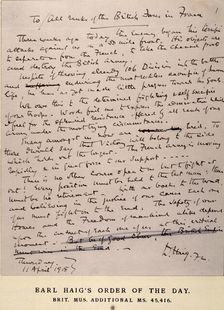 To/ All ranks of the British Forces in France
Three weeks ago today the enemy began his terrific
attacks against us on a 50 mile front. His objects are
to separate us from the French, to take the Channel ports
and destroy the British Army.
In spite of throwing already 106 Divisions into the battle
and the most reckless sacrifice of human
life, he has as yet made little progress towards his goals.
We owe this to the determined fighting & self sacrifice
of our troops. Words fail me to express the admiration which
I feel for the splendid resistance offered by all ranks of our
Army under the most trying circumstances.
Many amongst us now are tired. To those
I would say that Victory will belong to the side
which holds out the longest. The French Army is moving
rapidly & in great force to our support.
There is no other course open to us but to fight it
out! Every position must be held to the last man: there
must be no retirement. With our backs to the wall
and believing in the justice of our cause each one
of us must fight on to the end. The safety of our
Homes and the Freedom of mankind alike depend
on the conduct of each one of us at this critical
moment.
Thursday
11 April 1918
D. Haig. F.M.
EARL HAIG'S ORDER OF THE DAY.
BRIT. MUS. ADDITIONAL MS. 45,416.